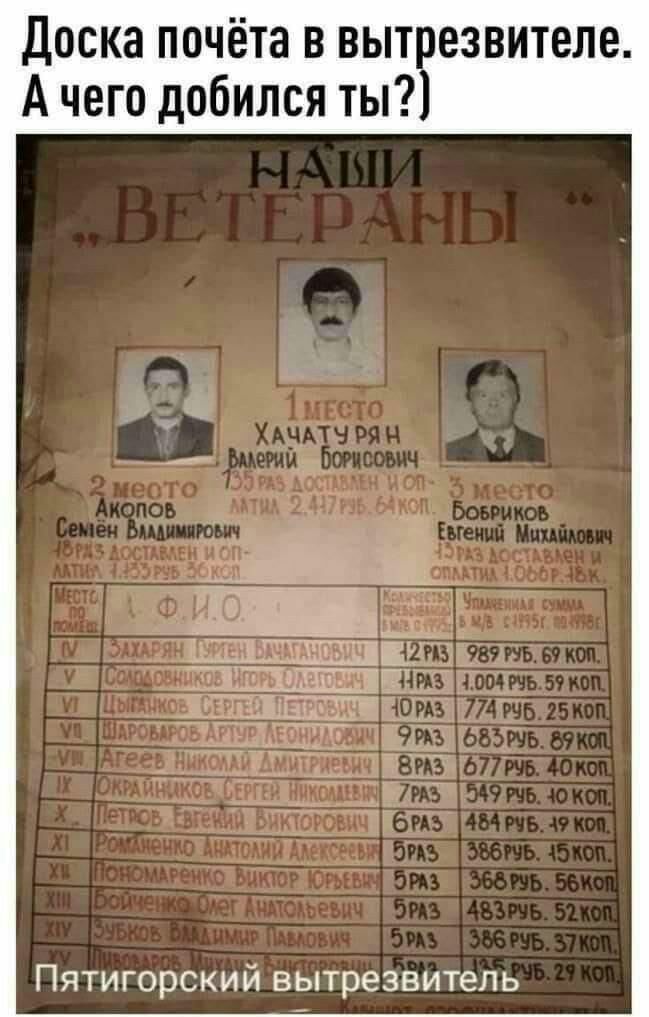 Доска почёта в вытрезвителе.
А чего добился ты?)
НАШИ
„ВЕТЕРАНЫ“
1 место
ХАЧАТУРЯН
Валерий Борисович
135 раз доставлен и оп-
латил 2.417 руб. 64 коп.
2 место
Акопов
Семён Владимирович
18 раз доставлен и оп-
латил 1.133 руб 56 коп.
3 место
Бобриков
Евгений Михайлович
13 раз доставлен и
оплатил 1.066 р. 18 к.
Место по помещ. Ф.И.О. Количество пребываний в м/в с 1995г. Уплаченная сумма в м/в с 1995г. по 1998г.
IV Захарян Гурген Вачаганович 12 раз 989 руб. 69 коп.
V Солодовников Игорь Олегович 11 раз 1.004 руб. 59 коп.
VI Цыганков Сергей Петрович 10 раз 774 руб. 25 коп.
VII Шароваров Артур Леонидович 9 раз 685 руб. 89 коп.
VIII Агеев Николай Дмитриевич 8 раз 677 руб. 40 коп.
IX Окрайников Сергей Николаевич 7 раз 549 руб. 10 коп.
X Петров Евгений Викторович 6 раз 484 руб. 19 коп.
XI Романенко Анатолий Алексеевич 5 раз 386 руб. 15 коп.
XII Пономаренко Виктор Юрьевич 5 раз 368 руб. 56 коп.
XIII Бойченко Олег Анатольевич 5 раз 483 руб. 52 коп.
XIV Зубков Владимир Павлович 5 раз 386 руб. 37 коп.
XV Пивоваров 5 раз руб. 29 коп.
Пятигорский вытрезвитель